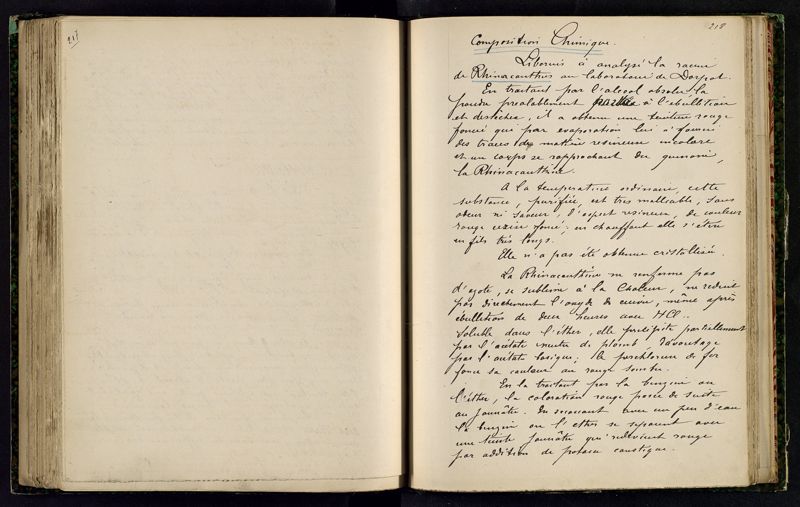 217
218
Composition Chimique.
Liborius à analysé la racine
de Rhinacanthus au laboratoire de Dorpat.
En traitant par l'alcool absolu la
poudre prealablement à l'ebullition
et dessechée, il a obtenu une teinture rouge
foncé qui par evaporation lui à fourni
des traces de matière resineuse incolore
et un corps se rapprochant du quinone,
la Rhinacanthine.
A la temperature ordinaire, cette
substance, purifiée, est très malleable, sans
odeur ni saveur, d'aspect resineux, de couleur
rouge cerise foncé; en chauffant elle s'étire
en fils très longs.
Elle n'a pas été obtenue cristallisée.
La Rhinacanthine ne renferme pas
d'azote, se sublime à la Chaleur, ne reduit
pas directement l'oxyde de cuivre, même après
ébullition de deux heures avec HCl.
Soluble dans l'éther, elle précipite partiellement
par l'acétate neutre de plomb, davantage
par l'acétate basique; le perchlorure de fer
fonce sa couleur au rouge sombre.
En la traitant par la benzine ou
l'éther, la coloration rouge passe de suite
au jaunâtre. En secouant avec un peu d'eau
la benzine ou l'ether se separent avec
une teinte jaunâtre qui redevient rouge
par addition de potasse caustique.